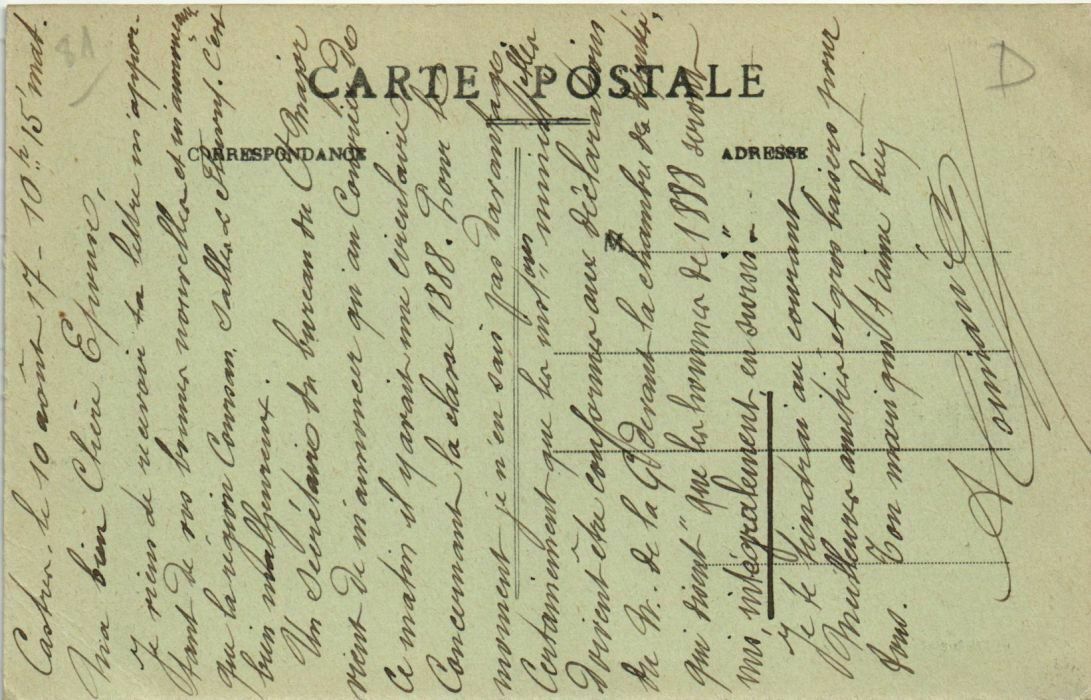 CARTE POSTALE
CORRESPONDANCE
ADRESSE
M
81
D
Castres le 10 août 17 - 10h 15 mat.
Ma bien Chère Epouse,
Je viens de recevoir ta lettre m'appor-
tant de vos bonnes nouvelles et m'annonçant
que la région Coursan, Salles et Fleury. C'est
bien malheureux.
Un secrétaire du bureau du Major
vient de m'annoncer qu'au Courrier de
ce matin il y avait une circulaire
concernant la classe 1888. Pour le
moment je n'en sais pas davantage.
Certainement que les instructions ministérielles
doivent être conformes aux déclarations
du M. de la G. devant la chambre des députés
qui disent "que les hommes de 1888 seront
mis intégralement en sursis".
Je te tiendrai au courant
Meilleures amitiés et gros baisers pour
tous. Ton mari qui t'aime bien